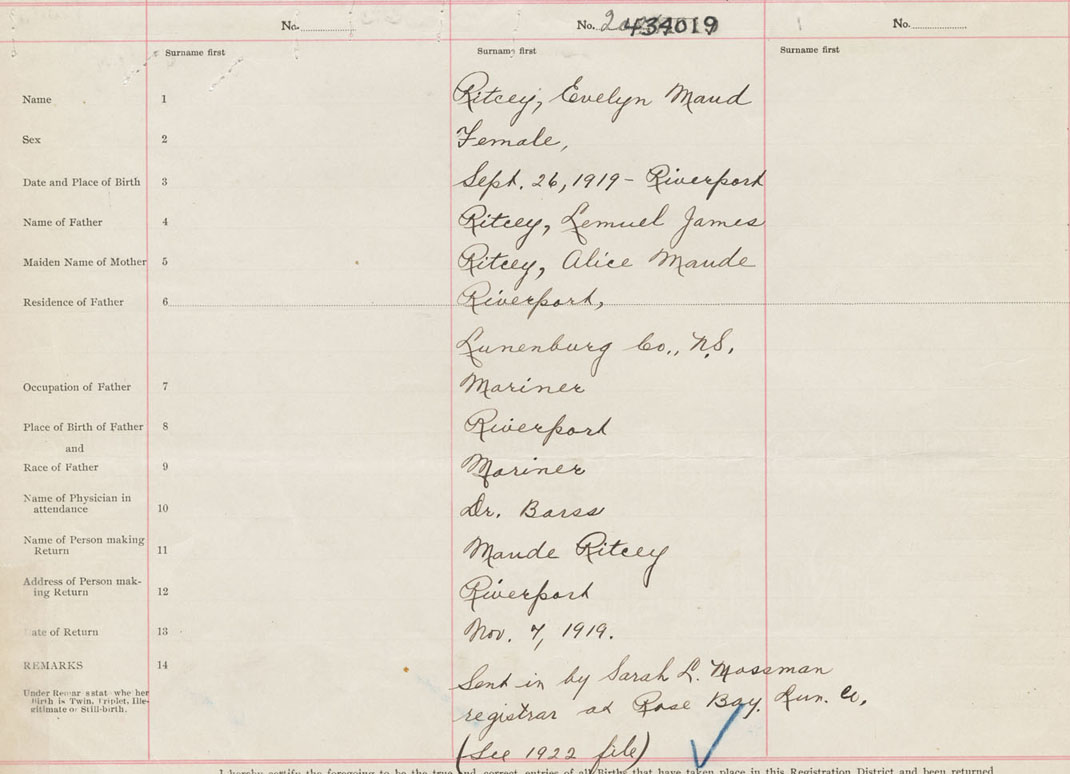 No. No. 434019 No.
Surname first Surname first Surname first
Name 1 Ritcey, Evelyn Maud
Sex 2 Female,
Date and Place of Birth 3 Sept. 26, 1919 - Riverport
Name of Father 4 Ritcey, Lemuel James
Maiden Name of Mother 5 Ritcey, Alice Maude
Residence of Father 6 Riverport,
Lunenburg Co., N.S.
Occupation of Father 7 Mariner
Place of Birth of Father 8 Riverport
and
Race of Father 9 Mariner
Name of Physician in
attendance 10 Dr. Barss
Name of Person making
Return 11 Maude Ritcey
Address of Person mak-
ing Return 12 Riverport
Date of Return 13 Nov. 7, 1919.
REMARKS 14 Sent in by Sarah L. Mossman
Under Remar s stat whe her
Birth is Twin, Triplet, Ille-
gitimate or Still-birth.
registrar at Rose Bay. Lun. Co.
(See 1922 file)
I hereby certify the foregoing to be the true and correct entries of all Births that have taken place in this Registration District and been returned